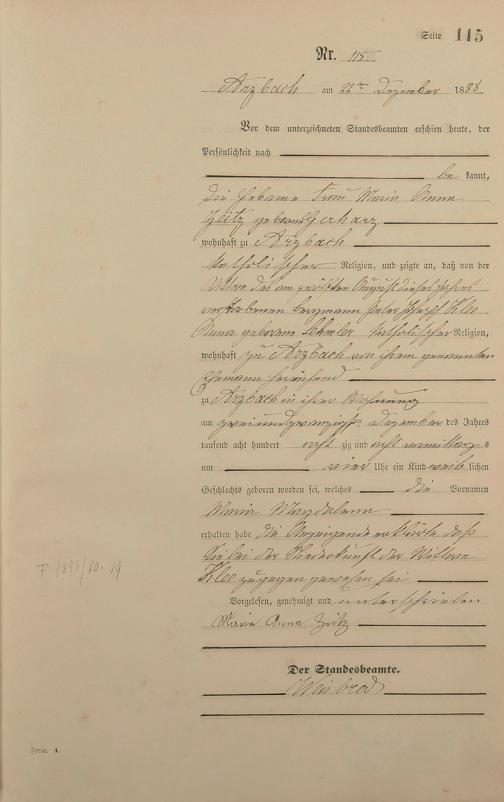 Seite 115
Nr. 115
Arzbach am 22ten Dezember 1888
Vor dem unterzeichneten Standesbeamten erschien heute, der
Persönlichkeit nach
be kannt,
die Hebamme Frau Maria Anna
Zeitz geborene Gerharz
wohnhaft zu Arzbach
katholischer Religion, und zeigte an, daß von der
Witwe des am zwölften August dieses Jahres
verstorbenen Bergmann Peter Joseph Klee
Anna geborene katholischer Religion,
wohnhaft zu Arzbach von ihrem genannten
Ehemann herrührend
zu Arzbach in ihrer Wohnung
am zweiundzwanzigsten Dezember des Jahres
tausend acht hundert acht zig und acht vormittags
um vier Uhr ein Kind weib lichen
Geschlechts geboren worden sei, welches die Vornamen
Maria Magdalena
erhalten habe die Anzeigende erklärte, daß
sie bei der Niederkunft der Wittwe
Klee zugegen gewesen sei
Vorgelesen, genehmigt und unterschrieben
Maria Anna Zeitz
Der Standesbeamte.
Weisbrod
Form. A.